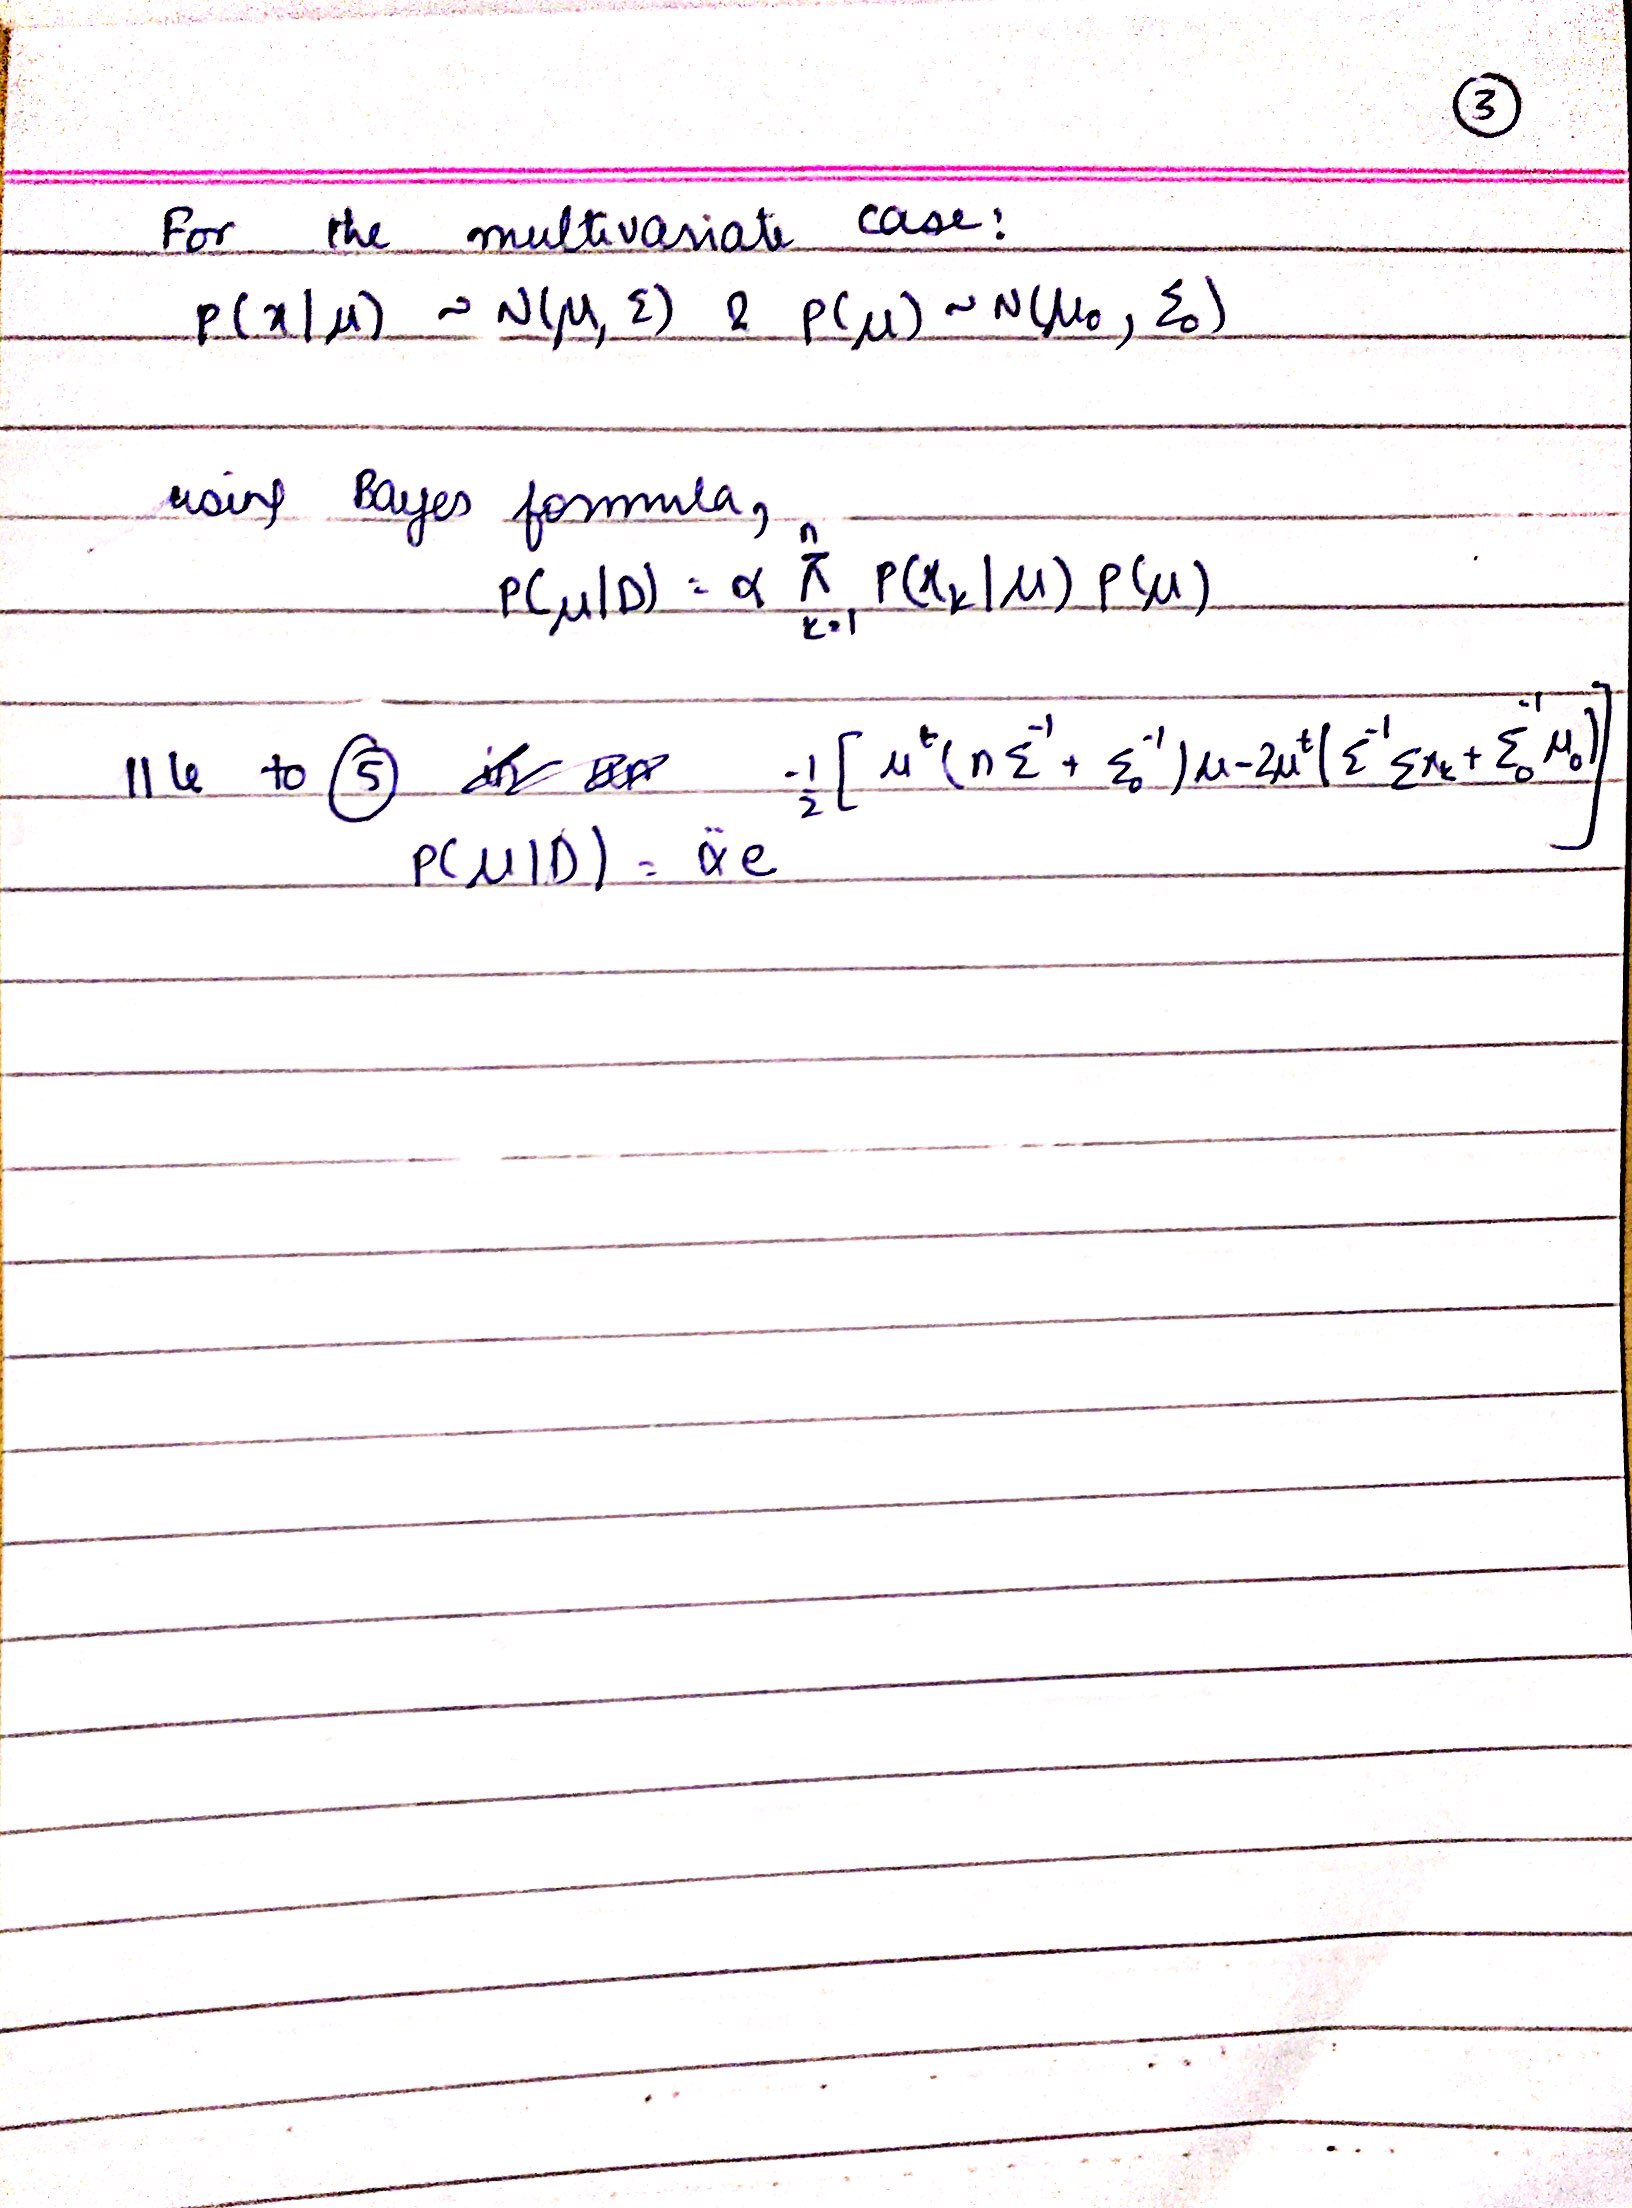 ③
For the multivariate case:
P(x|μ) ~ N(μ, Σ) & P(μ) ~ N(μ₀, Σ₀)
using Bayes formula,
P(μ|D) = α ∏ₖ₌₁ⁿ P(xₖ|μ) P(μ)
||ly to ⑤ -1/2 [μᵗ(nΣ⁻¹ + Σ₀⁻¹)μ - 2μᵗ(Σ⁻¹ Σxₖ + Σ₀⁻¹ μ₀)]
P(μ|D) = α̈ e